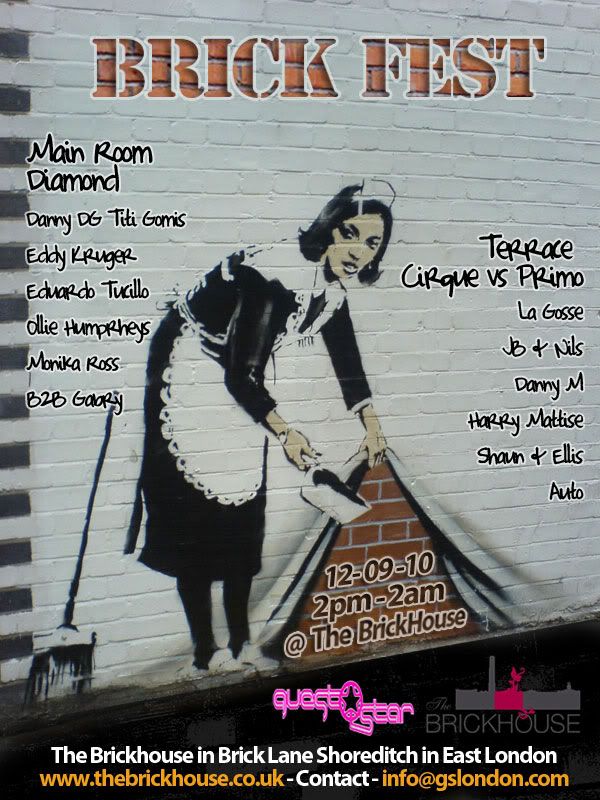 BRICK FEST
Main Room
Diamond
Danny DG Titi Gomis
Eddy Kruger
Eduardo Tucillo
Ollie Humprheys
Monika Ross
B2B Gabry
Terrace
Cirque vs Primo
La Gosse
JB & Nils
Danny M
Harry Mattise
Shaun & Ellis
Auto
12-09-10
2pm-2am
@ The BrickHouse
guest star
The
BRICKHOUSE
The Brickhouse in Brick Lane Shoreditch in East London
www.thebrickhouse.co.uk - Contact - info@gslondon.com